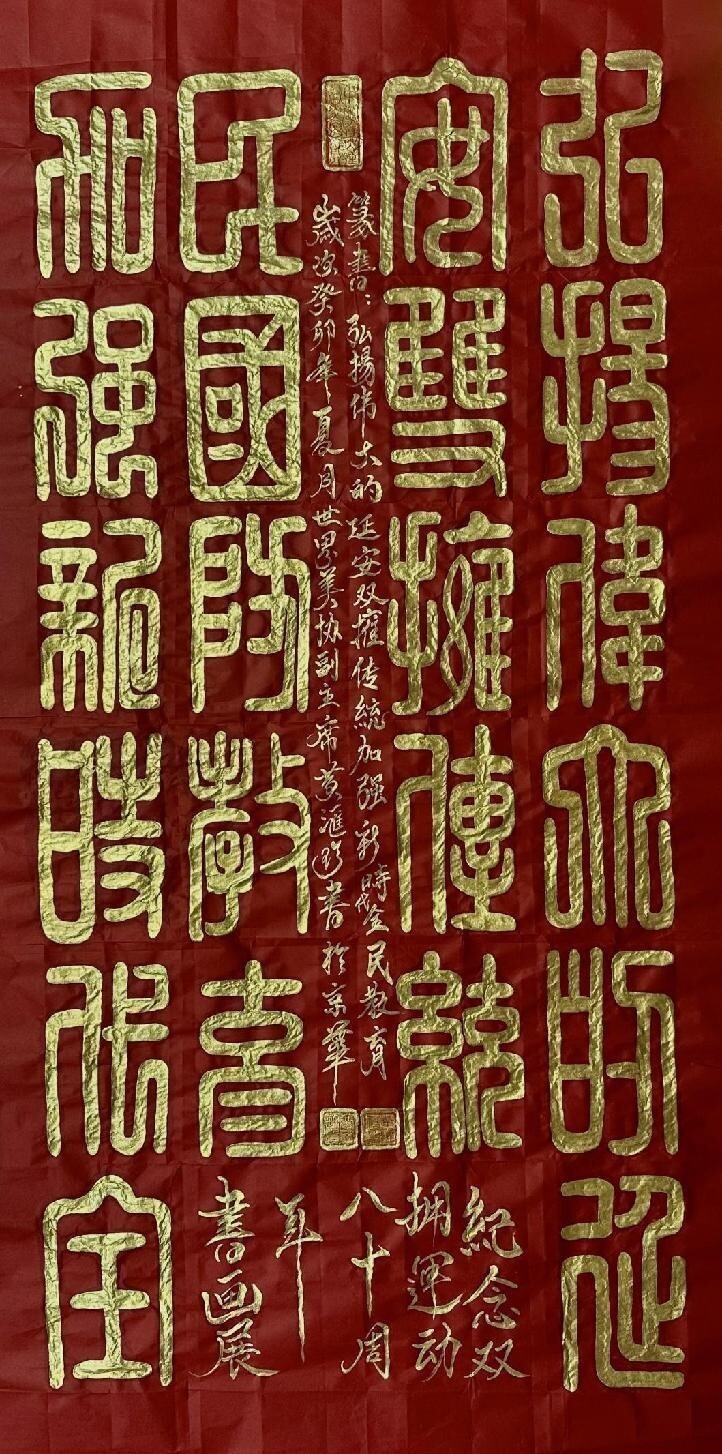 弘揚偉大的延
安雙擁傳統
加强新時代全
民國防教育
篆書：弘揚伟大的延安双擁传統加强新時代全民教育
歲次癸卯年夏月世界美协副主席黄滙書於京華
紀念双
拥運动
八十周
年
書画展